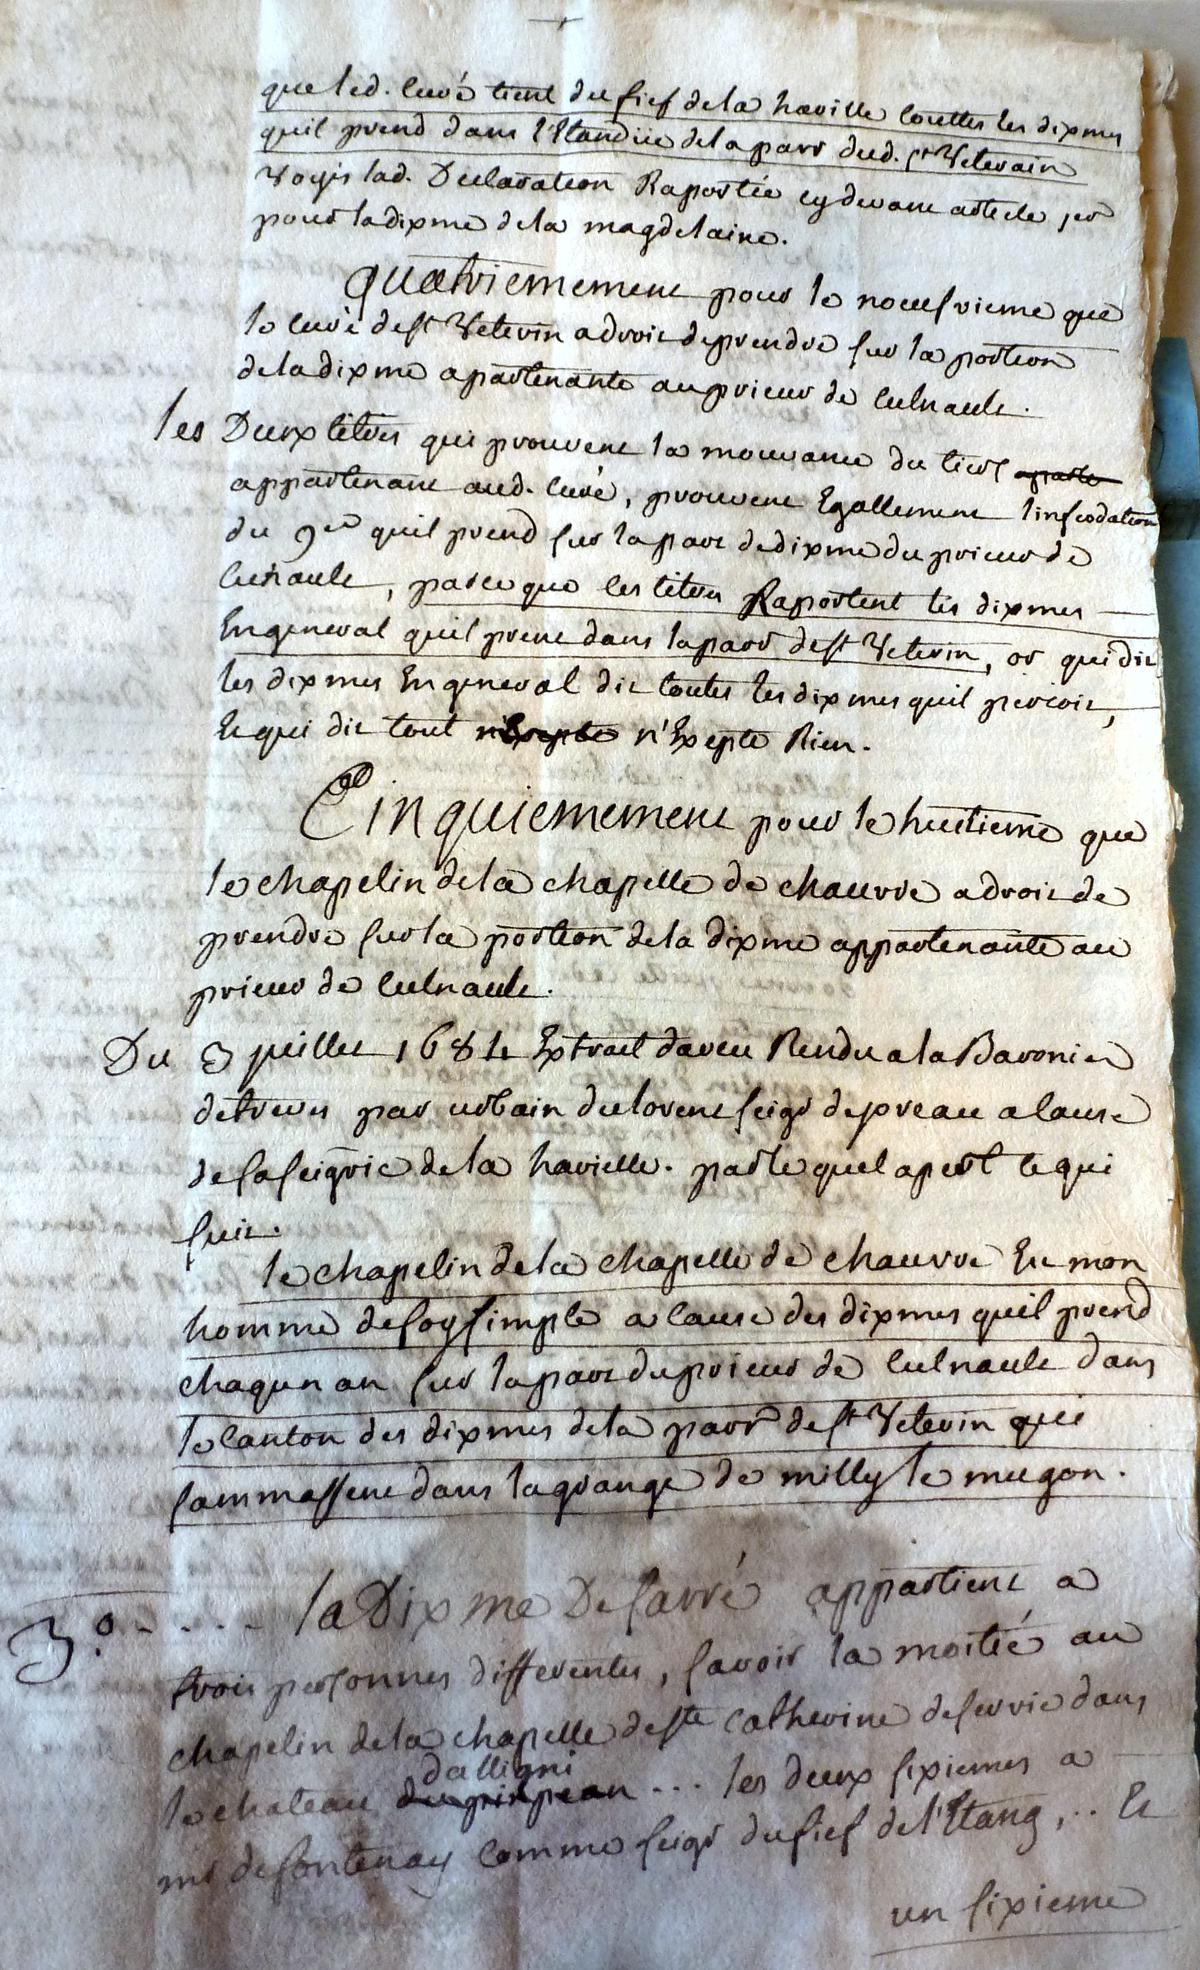 que led. curé tient du fief de la haville touttes les dixmes
quil prend dans l'Etandüe de la parr dud. st Veterain
Voyés lad. Declaration Raportée cy devant article 1er
pour la dixme de la magdelaine.
Quatriememement pour le neufvieme que
le curé de st Veterin a droit de prendre sur la portion
de la dixme apartenante au prieur de Culnault.
les Deux titres qui prouvent la mouvance du tiers aparte
appartenant aud. curé, prouvent Egallement l'infeodation
du 9e quil prend sur la part de dixme du prieur de
Cunault, parce que les titres Raportent les dixmes
En general quil prent dans la parr de st Veterin, or qui dit
les dixmes En general dit toutes les dixmes quil percoit,
Et qui dit tout n'Exepte n'Exepte Rien.
Cinquiemement pour le huitieme que
le chapelin de la chapelle de chauvre a droit de
prendre sur la portion de la dixme appartenante au
prieur de Culnault.
Du 3 juillet 1684 Extrait daveu Rendu a la Baronie
de treves par urbain du lorent seigr de preau a cause
de sa seigrie de la havielle. par lequel apert ce qui
suit.
le chapelin de la chapelle de chauvre Est mon
homme de foy simple a cause des dixmes quil prend
chaqun an sur la part du prieur de Culnault dans
le canton des dixmes de la parr de st Veterin qui
sammassent dans la grange de milly le mugon.
3º. . . . la Dixme De sarré appartient a
trois personnes differentes, savoir la moitié au
chapelin de la chapelle de ste catherine deservie dans
dalligni
le chateau du pinpean ... les deux sixiemes a
mr de fontenay comme seigr du fief de l'Etang, .. Et
un sixieme